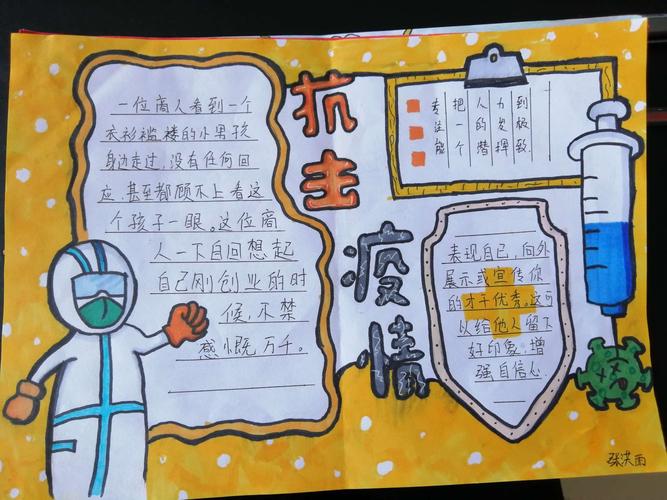 抗击
疫情
一位商人看到一个
衣衫褴褛的小男孩
身边走过，没有任何回
应，甚至都顾不上看这
个孩子一眼。这位商
人一下自回想起
自己刚创业的时
候，不禁
感慨万千。
专注能
把一个
人的潜
力发挥
到极致
表现自己，向外
展示或宣传你
的才干优秀，这可
以给他人留下
好印象，增
强自信心